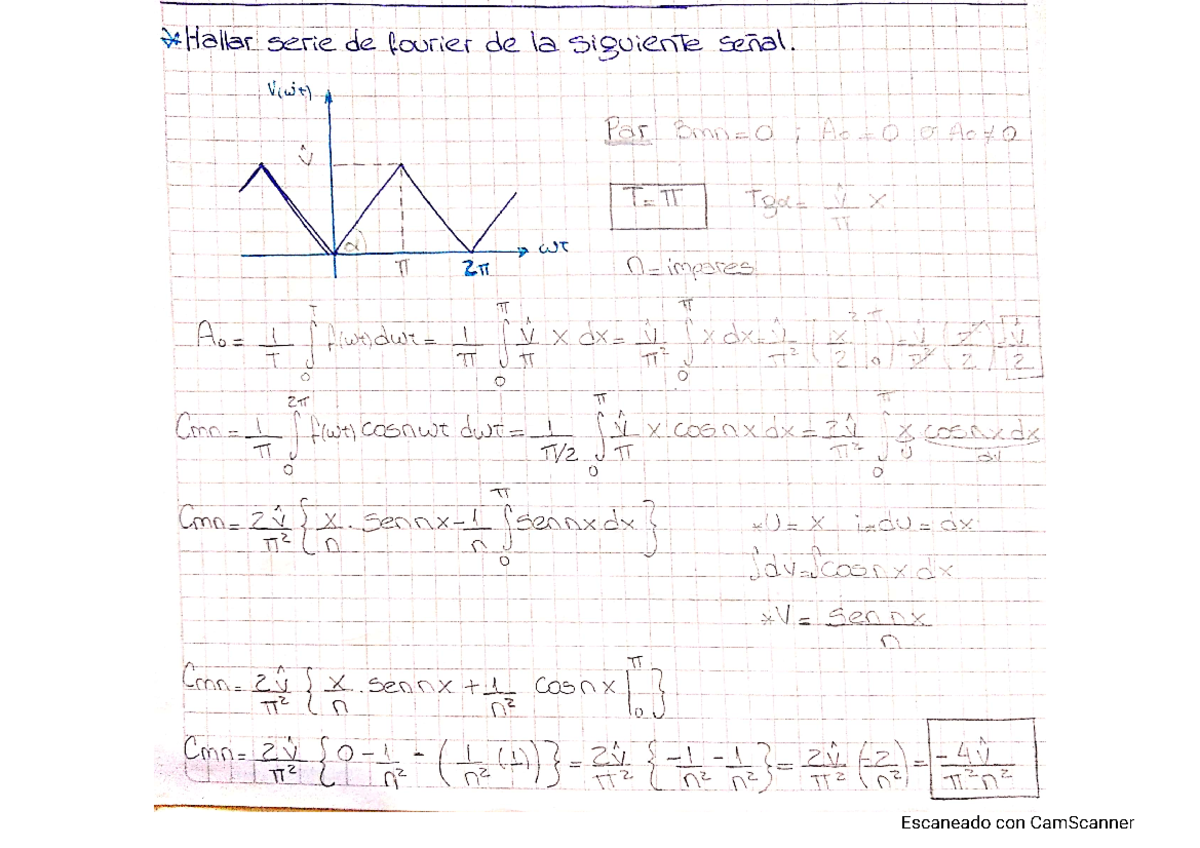 *Hallar serie de fourier de la siguiente señal.
V(wt)
Par Bmn=0 ; Ao=0 o Ao≠0
V̂
T=π Tgα= V̂/π x
α
wt
π 2π
n=impares
Ao= 1/T ∫₀ᵀ f(wt)dwt= 1/π ∫₀^π V̂/π x dx= V̂/π² ∫₀^π x dx= V̂/π² (x²/2 |₀^π)= V̂/π² (π²/2)= V̂/2
Cmn= 1/π ∫₀^2π f(wt) cosnwt dwt= 1/(π/2) ∫₀^π V̂/π x cosnx dx= 2V̂/π² ∫₀^π x cosnx dx
U dv
Cmn= 2V̂/π² { x/n . sennx - 1/n ∫₀^π sennx dx }
*U= x du= dx
∫dv=∫cosnx dx
*V= sennx/n
Cmn= 2V̂/π² { x/n . sennx + 1/n² cosnx |₀^π }
Cmn= 2V̂/π² { 0 - 1/n² - (1/n² (1)) } = 2V̂/π² { -1/n² - 1/n² } = 2V̂/π² (-2/n²) = -4V̂/π²n²
Escaneado con CamScanner